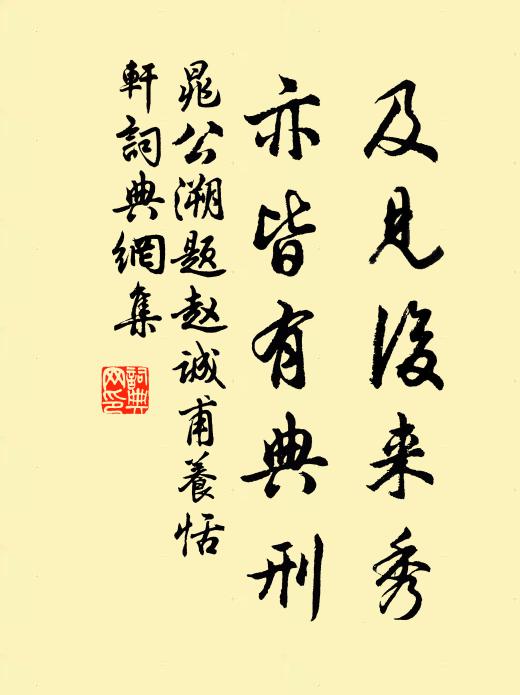 及見後来秀
亦皆有典刑
晁公溯题赵诚甫養恬
軒詞典網集
詞典网印